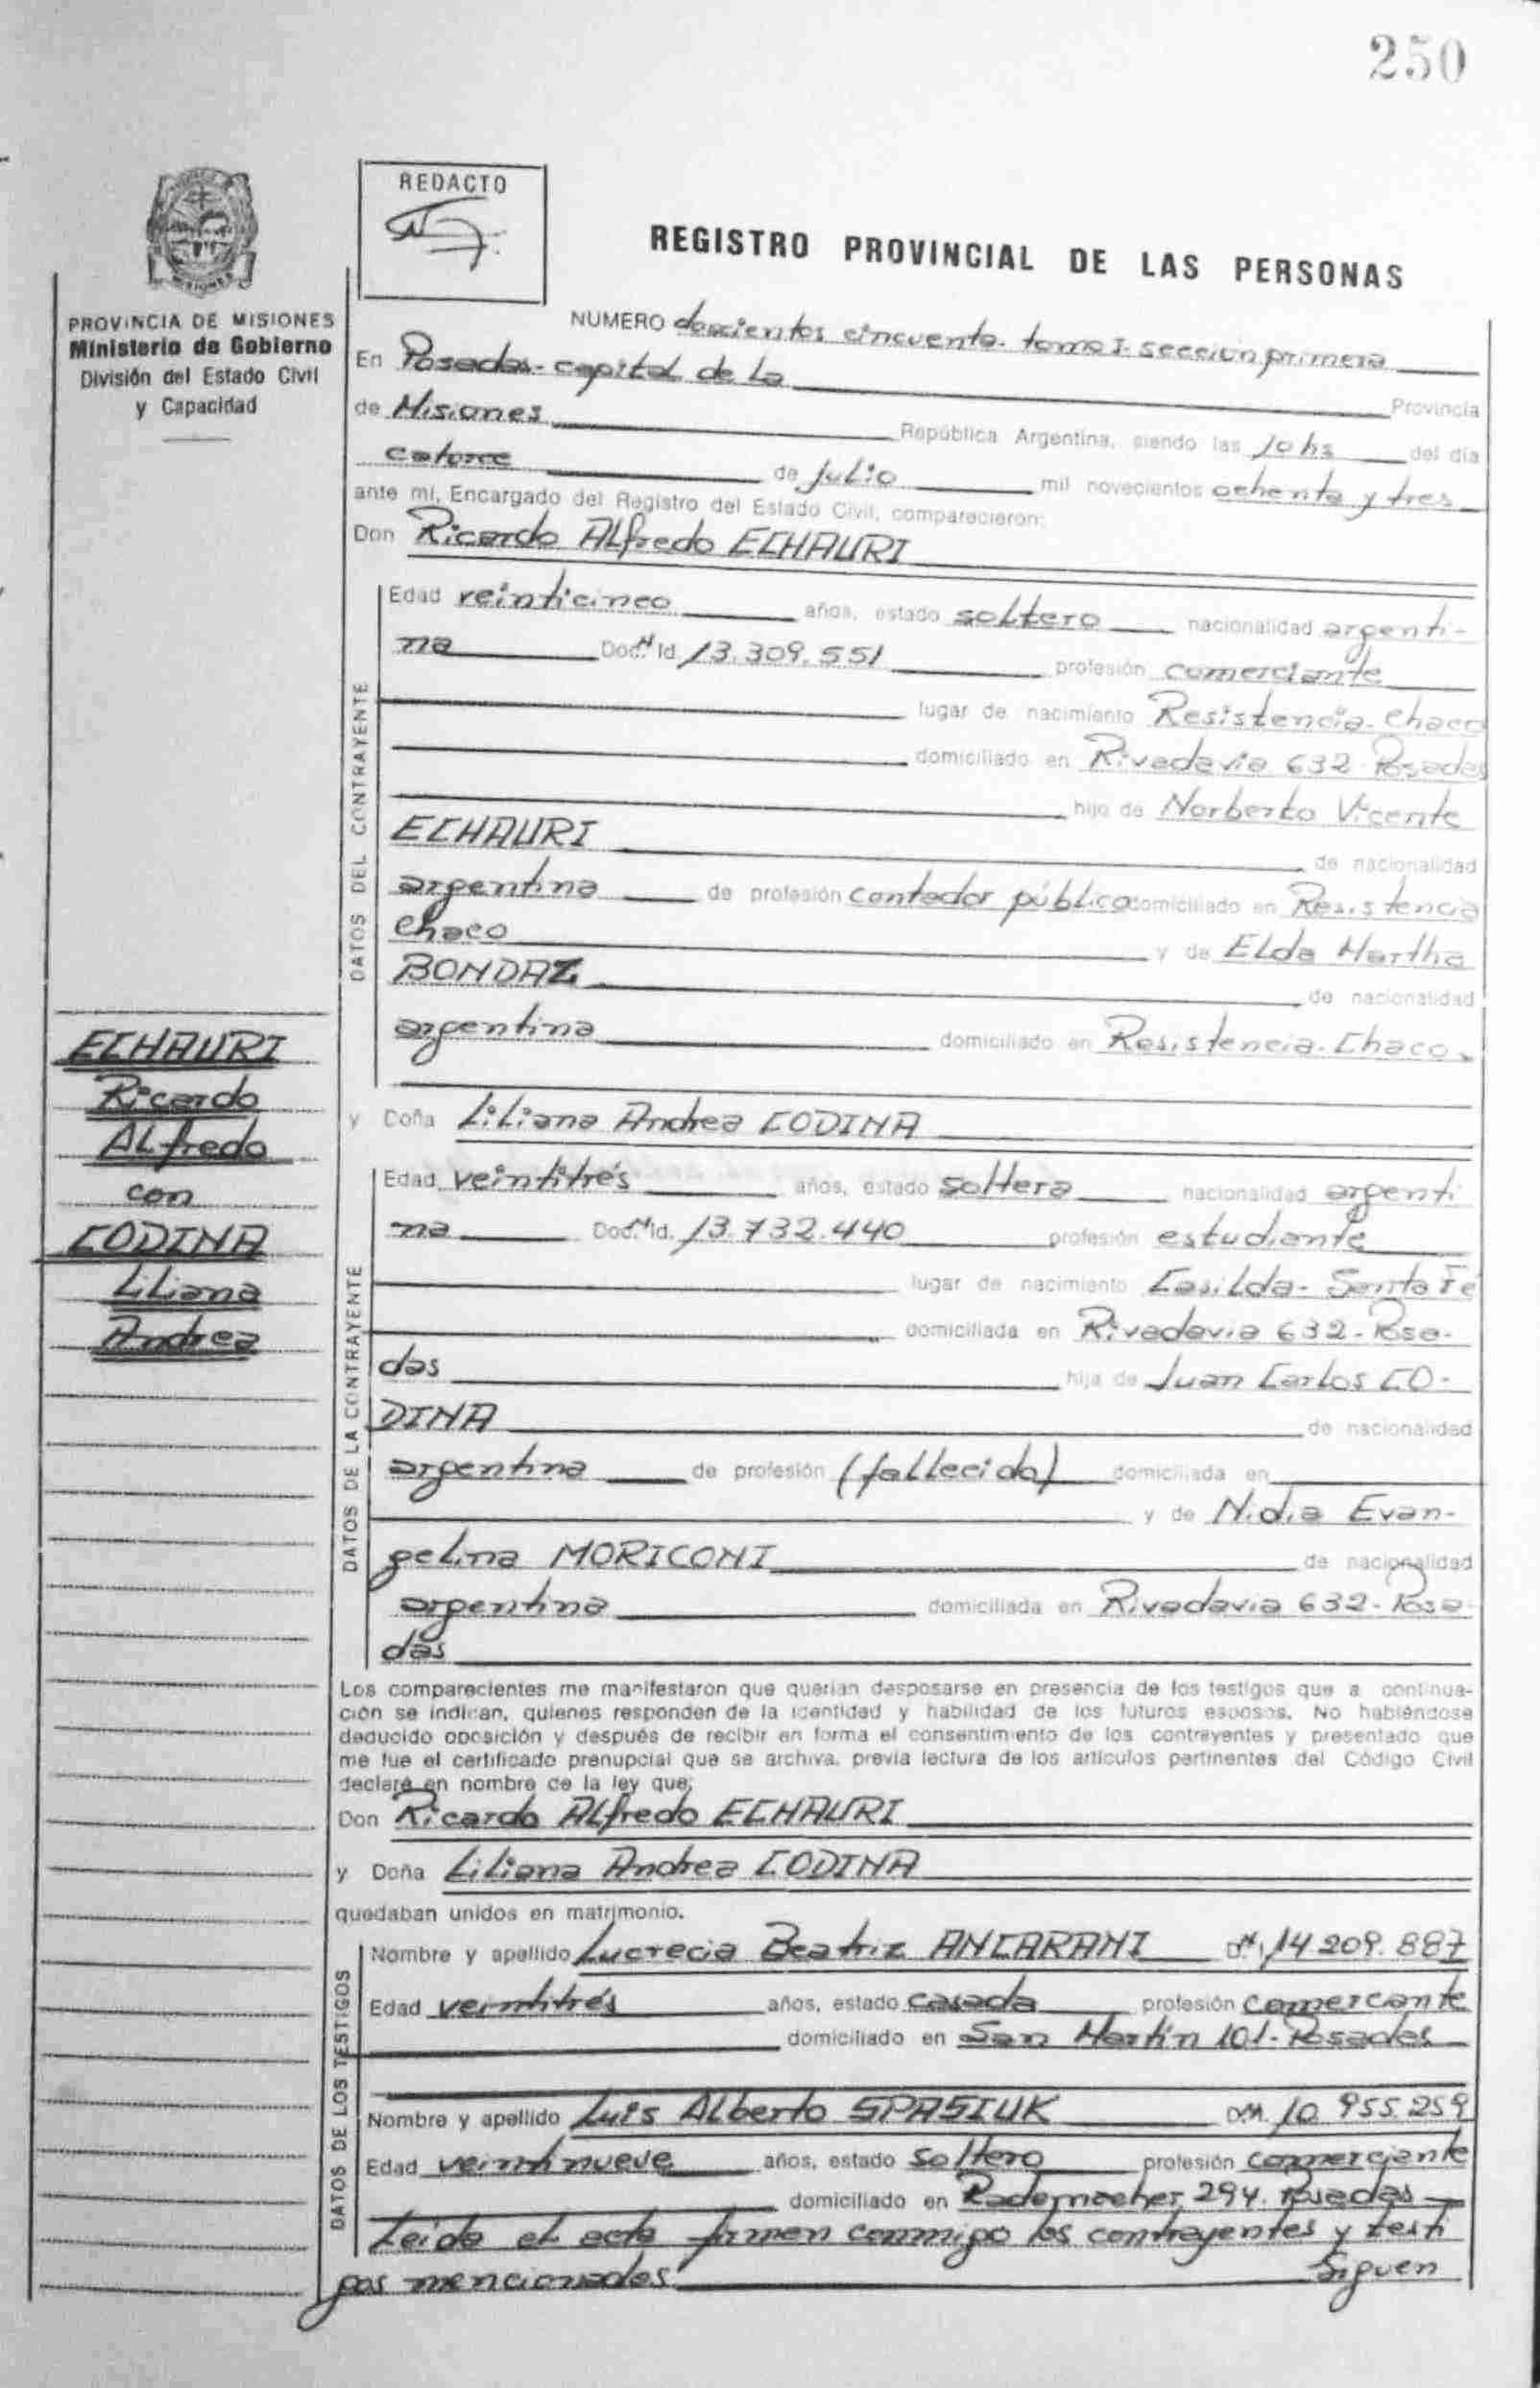 250
REDACTO
REGISTRO PROVINCIAL DE LAS PERSONAS
PROVINCIA DE MISIONES
Ministerio de Gobierno
División del Estado Civil
y Capacidad
NUMERO doscientos cincuenta. tomo I. sección primera
En Posadas- capital de la Provincia
de Misiones República Argentina, siendo las 10 hs del día
catorce de julio mil novecientos ochenta y tres
ante mí, Encargado del Registro del Estado Civil, comparecieron:
Don Ricardo Alfredo ECHAURI
DATOS DEL CONTRAYENTE
Edad veinticinco años, estado soltero nacionalidad argenti-
na Doc. Id. 13.309.551 profesión comerciante
lugar de nacimiento Resistencia- Chaco
domiciliado en Rivadavia 632- Posadas
hijo de Norberto Vicente
ECHAURI de nacionalidad
argentina de profesión contador público domiciliado en Resistencia
Chaco y de Elda Martha
BONDAZ de nacionalidad
argentina domiciliado en Resistencia- Chaco.
ECHAURI
Ricardo
Alfredo
con
CODINA
Liliana
Andrea
y Doña Liliana Andrea CODINA
DATOS DE LA CONTRAYENTE
Edad veintitrés años, estado soltera nacionalidad argenti
na Doc. Id. 13.732.440 profesión estudiante
lugar de nacimiento Casilda- Santa Fé
domiciliada en Rivadavia 632- Posa-
das hija de Juan Carlos CO-
DINA de nacionalidad
argentina de profesión (fallecido) domiciliada en
y de Nidia Evan-
gelina MORICONI de nacionalidad
argentina domiciliada en Rivadavia 632- Posa
das
Los comparecientes me manifestaron que querían desposarse en presencia de los testigos que a continua-
ción se indican, quienes responden de la identidad y habilidad de los futuros esposos. No habiéndose
deducido oposición y después de recibir en forma el consentimiento de los contrayentes y presentado que
me fue el certificado prenupcial que se archiva, previa lectura de los artículos pertinentes del Código Civil
declaré en nombre de la ley que:
Don Ricardo Alfredo ECHAURI
y Doña Liliana Andrea CODINA
quedaban unidos en matrimonio.
DATOS DE LOS TESTIGOS
Nombre y apellido Lucrecia Beatriz ANCARANI 14 209.887
Edad veintitrés años, estado casada profesión comerciante
domiciliado en San Martín 101- Posadas
Nombre y apellido Luis Alberto SPASIUK 10.955.259
Edad veintinueve años, estado soltero profesión comerciante
domiciliado en Rademacher 294. Posadas
Leída el acta firman conmigo los contrayentes y testi
gos mencionados Siguen